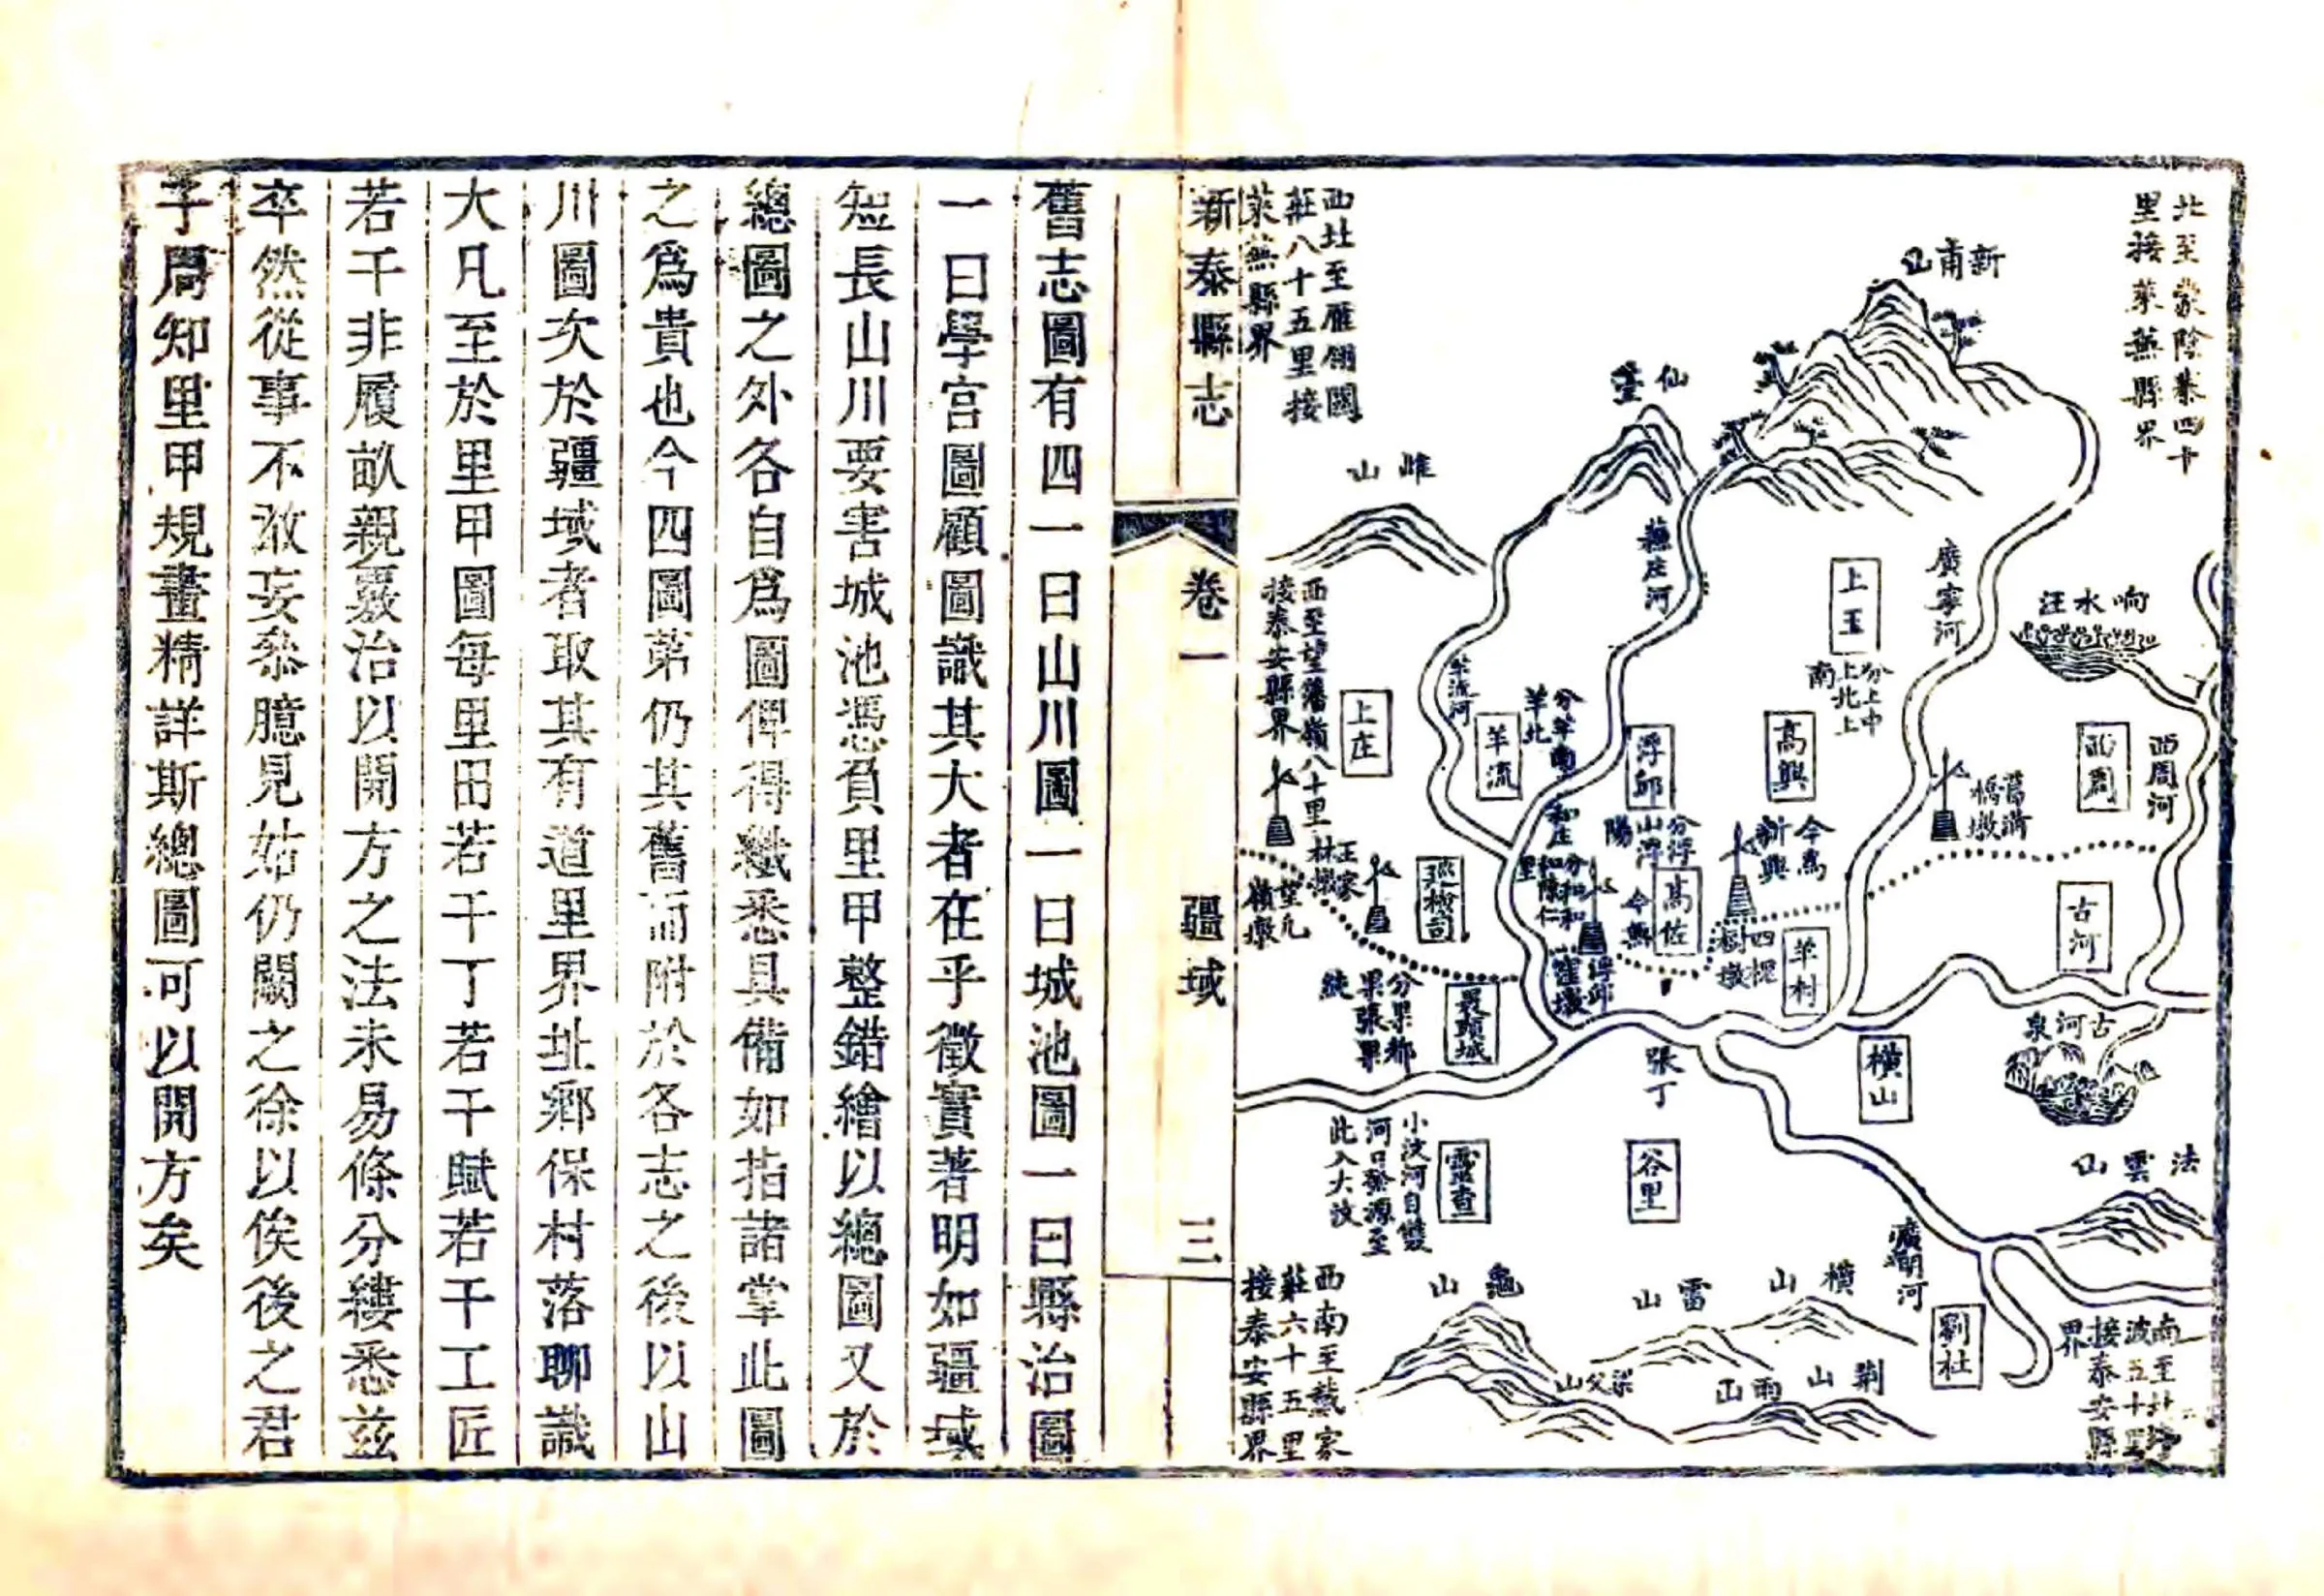 北至蒙陰寨四十
里接萊蕪縣界
新甫山
仙臺
雎山
西北至雁翎關
莊八十五里接
萊蕪縣界
响水汪
廣寧河
上玉
分上中
上北上
南
西周
西周河
高興
今爲
新興
浮邱
分浮
山浮
陽
羊流
分羊南
羊北
羊流河
上庄
西至望僊嶺八十里
接泰安縣界
古河
羊村
四槐
樹墩
高佐
今無
浮邱
窪墩
巡檢司
王家
林墩
分果都
果張果
裏頭城
橫山
古河泉
張丁
谷里
靈查
小汶河自雙
河口發源至
此入大汶
法雲山
廣明河
劉社
橫山
雷山
龜山
梁父山
雨山
荆山
西南至戴家
莊六十五里
接泰安縣界
接泰安縣
界
新泰縣志
卷一
疆域
三
舊志圖有四一曰山川圖一曰城池圖一曰縣治圖
一曰學宮圖顧圖識其大者在乎徵實著明如疆域
短長山川要害城池憑負里甲整錯繪以總圖又於
總圖之外各自爲圖俾得纖悉具備如指諸掌此圖
之爲貴也今四圖第仍其舊而附於各志之後以山
川圖次於疆域者取其有道里界址鄉保村落聊識
大凡至於里甲圖每里田若干丁若干賦若干工匠
若干非履畝親覈治以開方之法未易條分縷悉茲
卒然從事不敢妄叅臆見姑仍闕之徐以俟後之君
子周知里甲規畫精詳斯總圖可以開方矣